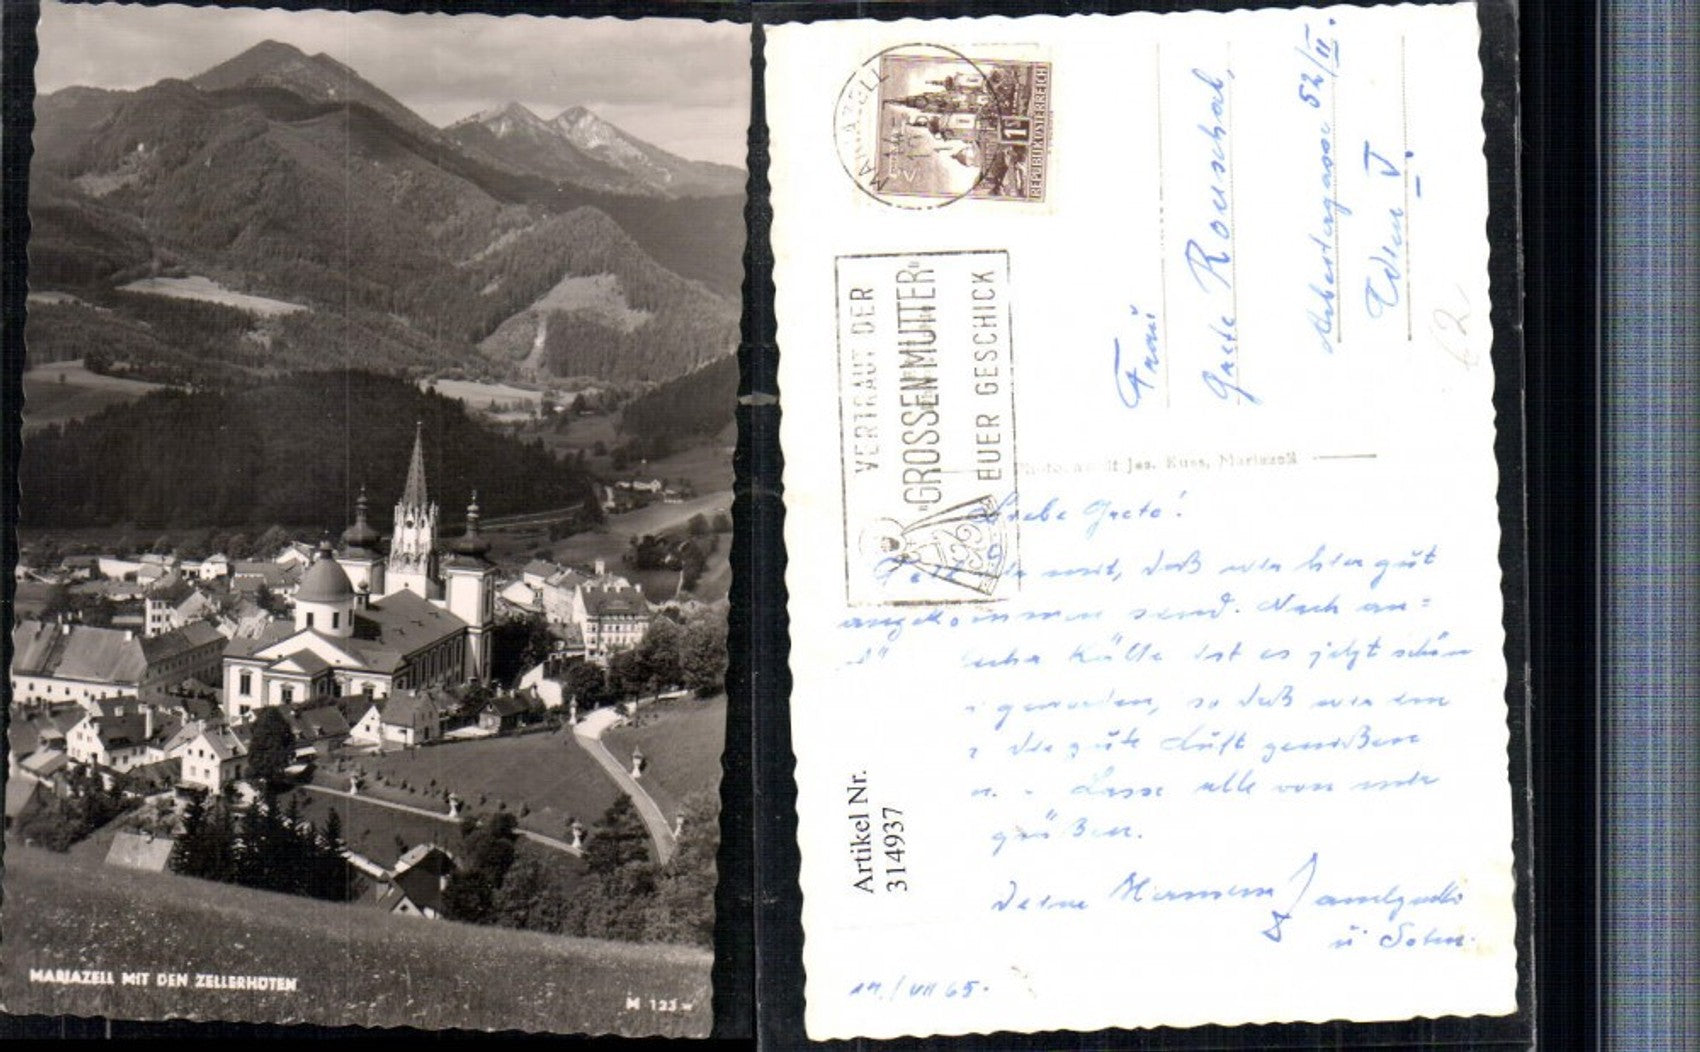 MARIAZELL MIT DEN ZELLERHÜTEN
M 123
MARIAZELL
1S
REPUBLIK ÖSTERREICH
VERTRAUT DER
"GROSSENMUTTER"
EUER GESCHICK
Frau
Grete
52/II.
Wien V.
62
Jos. Kuss, Mariazell
Liebe Grete!
mit, daß wir hier gut
angekommen sind. Nach an=
Kälte ist es jetzt schön
geworden, so daß wir
die gute Luft genießen
Lasse alle von mir
grüßen.
Deine
u.
Artikel Nr.
314937
14./VII 65.